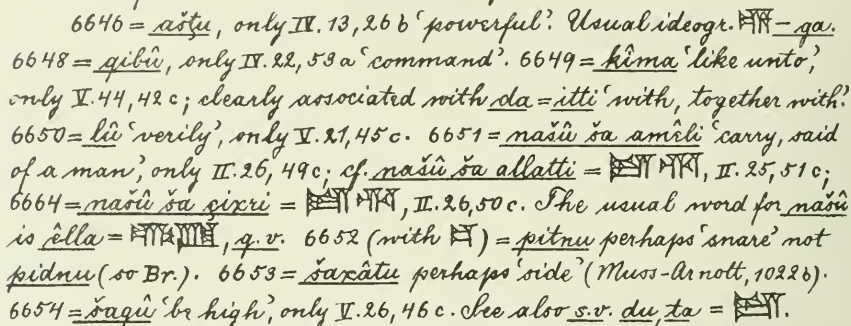 6646 = aštu, only IV. 13, 26 b 'powerful'. Usual ideogr. – ga.
6648 = qibû, only IV. 22, 53 a 'command'. 6649 = kîma 'like unto',
only V. 44, 42 c; clearly associated with da = itti 'with, together with'.
6650 = lû 'verily', only V. 21, 45 c. 6651 = našû ša amêli 'carry, said
of a man', only II. 26, 49 c; cf. našû ša allatti = , II. 25, 51 c;
6664 = našû ša çixri = , II. 26, 50 c. The usual word for našû
is êlla = , q.v. 6652 (with ) = pitnu perhaps 'snare' not
pidnu (so Br.). 6653 = šaxâtu perhaps 'side' (Muss-Arnott, 1022 b).
6654 = šaqû 'be high', only V. 26, 46 c. See also s.v. du, ta = .